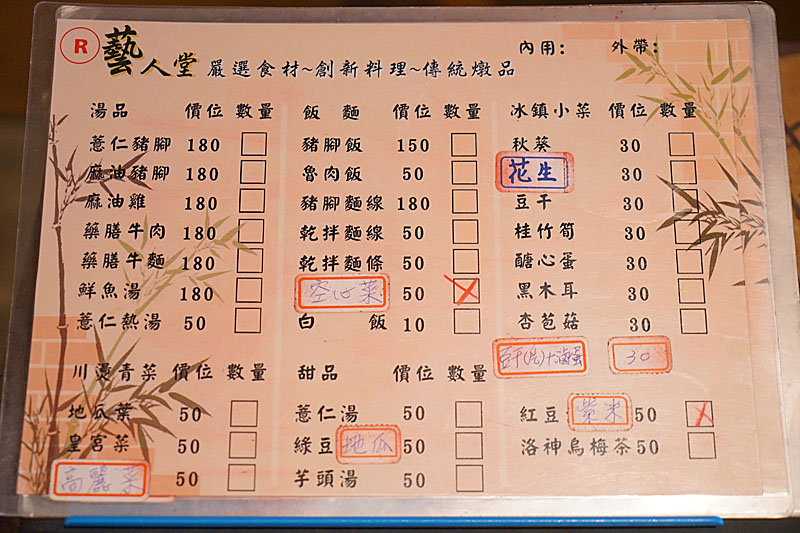 R 藝人堂 嚴選食材~創新料理~傳統燉品
內用: 外帶:
湯品 價位 數量
薏仁豬腳 180
麻油豬腳 180
麻油雞 180
藥膳牛肉 180
藥膳牛麵 180
鮮魚湯 180
薏仁熱湯 50
飯麵 價位 數量
豬腳飯 150
魯肉飯 50
豬腳麵線 180
乾拌麵線 50
乾拌麵條 50
空心菜 50
白飯 10
冰鎮小菜 價位 數量
秋葵 30
花生 30
豆干 30
桂竹筍 30
醣心蛋 30
黑木耳 30
杏苞菇 30
豆干(片)+滷蛋 30
川燙青菜 價位 數量
地瓜葉 50
皇宮菜 50
高麗菜 50
甜品 價位 數量
薏仁湯 50
綠豆地瓜 50
芋頭湯 50
紅豆紫米 50
洛神烏梅茶 50